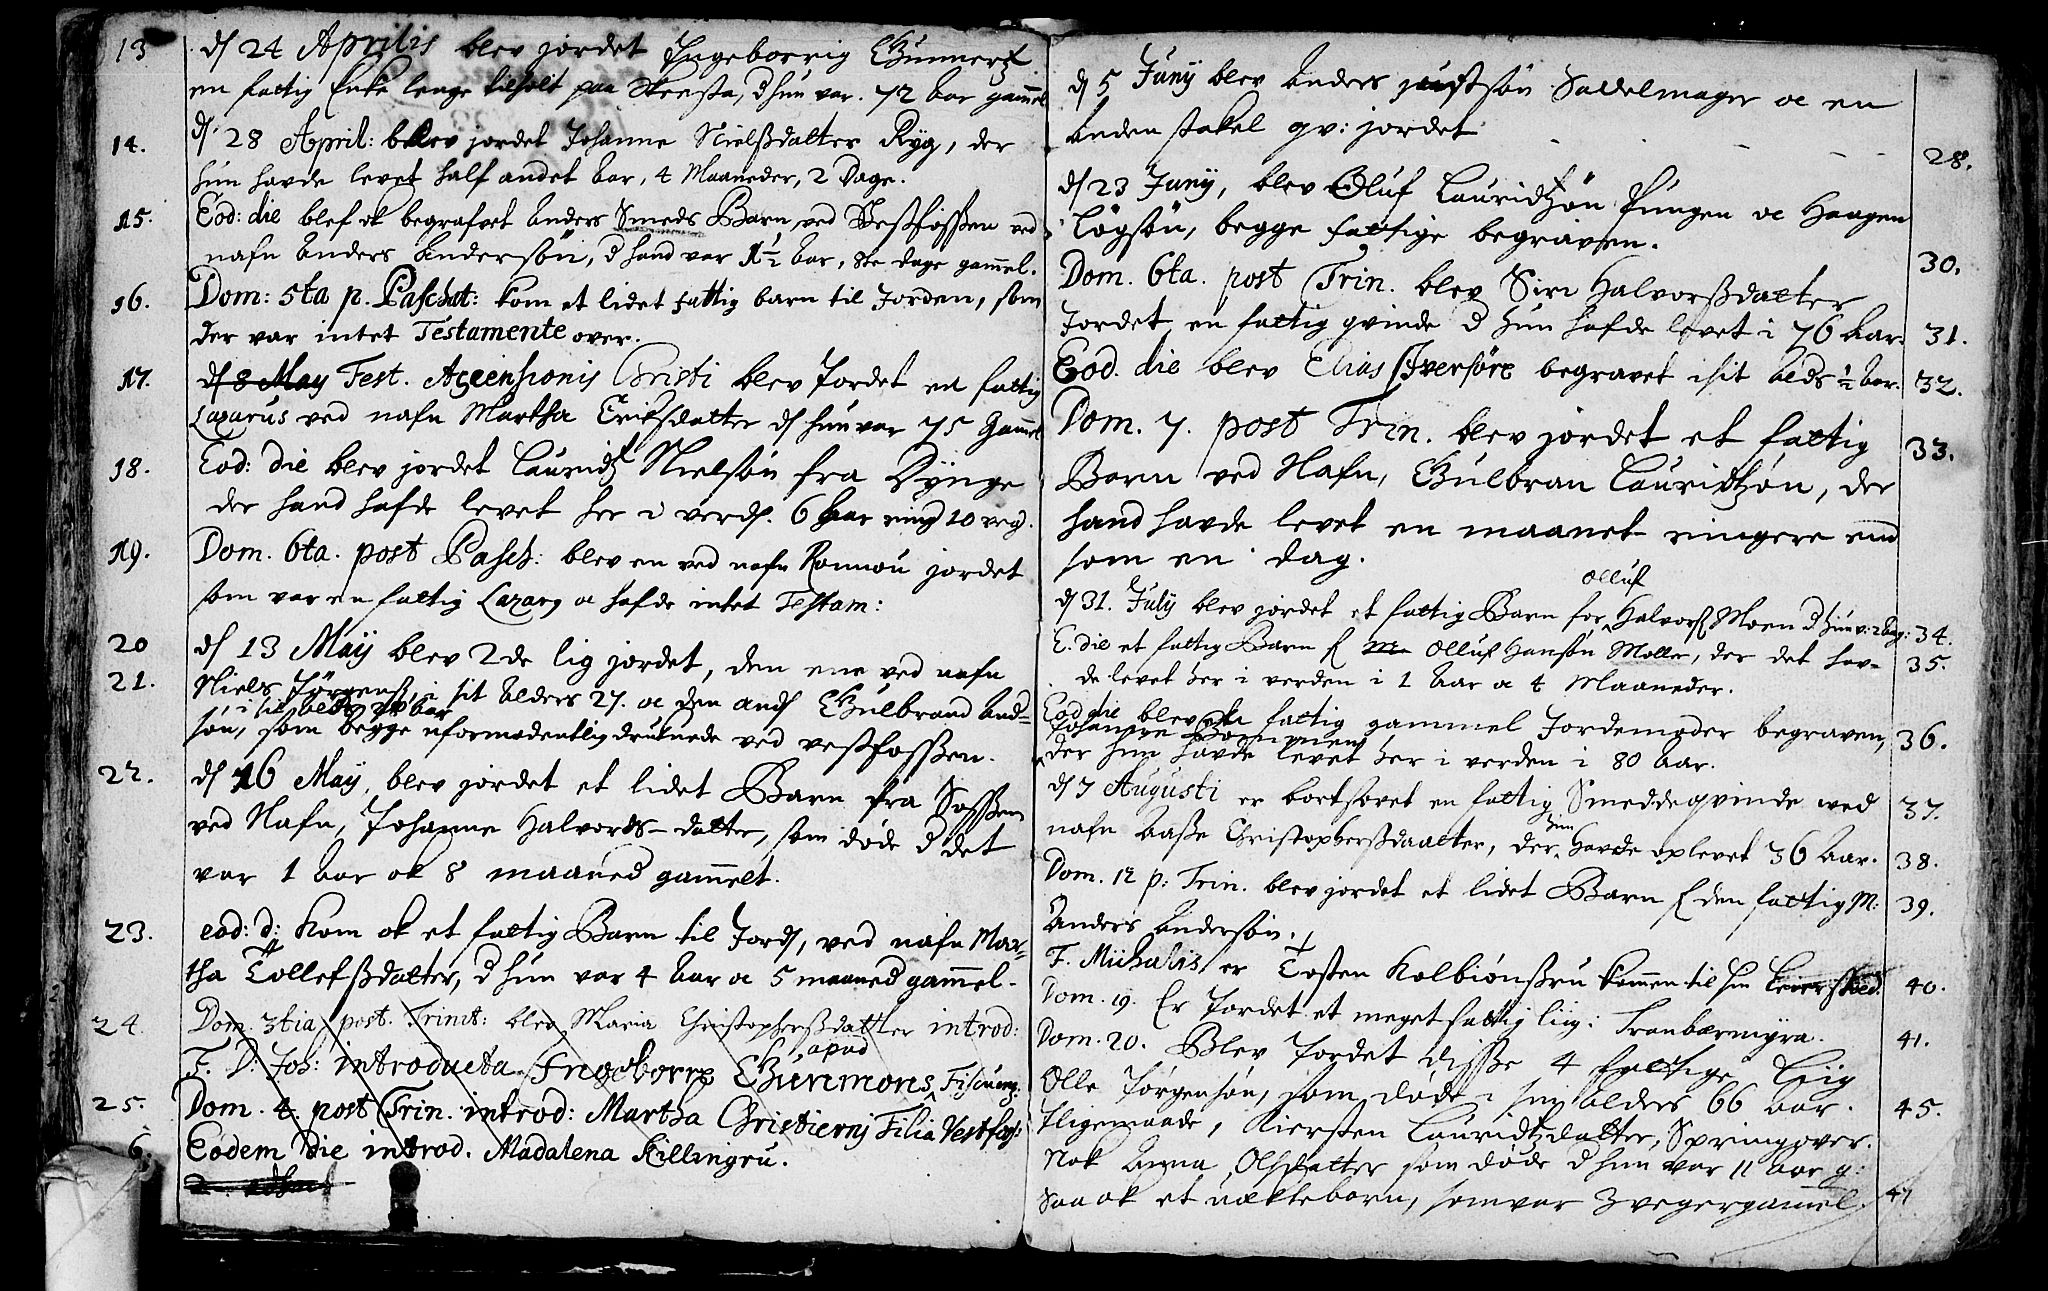 13 d 24 Aprilis blev jordet Ingeborrig Gunnertz
en fattig Enke lenge tilholt paa Skensta, d hun var. 72 aar gamel
14. d 28 April: blev jordet Johanne Nielßdatter Ryg, der
hun havde levet half andet aar, 4 Maaneder, 2 Dage.
15. Eod: die blef ok begrafvet Anders Smeds Barn, ved Vestfossen ved
nafn Anders Andersøn, d hand var 1½ aar, 8te dage gamel.
16. Dom: 5ta p. Paschat: kom et lidet fattig barn til Jorden, som
der var intet Testamente over.
17. d 8 May Fest. Ascensionis Christi blev Jordet en fattig
Lazarus ved nafn Martha Eriksdatter d hun var 75 Gamel
18. Eod: die blev jordet Lauridtz Nielsøn fra Dynge
der hand hafde levet her i verd. 6 aar ring 10 veg.
19. Dom. 6ta. post Pasch: blev en ved nafn Ronnou jordet
som var en fattig Lazarg oc hafde intet Testam:
20 d 13 Maij blev 2de lig jordet, den ene ved nafn
21. Niels Jørgens, i sit alders 27. oc den and Gulbrand And=
i sit alders 20 aar
søn, som begge uformodentlig druknede ved vestfossen.
22. d 16 May, blev jordet et lidet Barn fra Fossen
ved Nafn, Johanne Halvords-datter, som døde d det
var 1 aar ok 8 maaned gamelt.
23. eod: d: kom ok et fattig Barn til Jord, ved nafn Mar-
tha Tollefßdatter, d hun var 4 aar oc 5 maaned gamel.
24. Dom: 3tia post. Trinit: blev Maria Christopherßdatter introd:
F. D: Joh: introducta Ingeborre Gunmons apud Fiskum
25. Dom. 4. post Trin. introd: Martha Christierni Filia Vestfoss:
6. Eodem die introd. Madalena Killingru.
d 5 Junij blev Anders justsøn Sadelmager oc en
anden stakel qv: jordet 28.
d 23 Junij, blev Oluf Lauridtzøn Pungen oc Haagen
Løgsøn, begge fattige begraven. 30.
Dom. 6ta. post Trin. blev Siri Halvorßdatter
Jordet en fattig qvinde d hun hafde levet i 76 Aar. 31.
Eod. die blev Elias Iversøn begravet i sit alds ½ aar. 32.
Dom. 7. post Trin. blev jordet et fattig 33.
Barn ved Nafn, Gulbran Lauridtzøn, der
hand havde levet en maanet ringere end
som en dag.
d 31. July blev jordet et fattig Barn for Olluf Halvors Moen d hun v: 2 Aug: 34.
E. die et fattig Barn f Olluf Hansøn Møller, der det hav- 35.
de levet her i verden i 1 Aar oc 4 Maaneder.
Eod die blev fattig gammel Jordemoder begraven, 36.
Johanne
der hun havde levet her i verden i 80 Aar.
d 7 Augusti er bortsovet en fattig Smedde qvinde ved 37.
nafn Aaße Christopherßdaatter, der hun havde oplevet 36 Aar. 38.
Dom. 12 p: Trin. blev jordet et lidet Barn f den fattig M: 39.
Anders Andersøn.
F. Michalis er Tosten Kolbiönsru kommen til sin 40.
Dom. 19. Er Jordet et meget fattig liig: Tranbærmyra. 41.
Dom. 20. Blev Jordet disse 4 fattige Liig
Olle Jørgensøn, som døde i sin alders 66 Aar. 45.
tligemaade, Kiersten Lauridtzdatter, Springover.
Nok Anna Olsdatter som døde d hun var 11 Aar g:
Saa ok et uækteborn, som var 3 veger gamel. 47